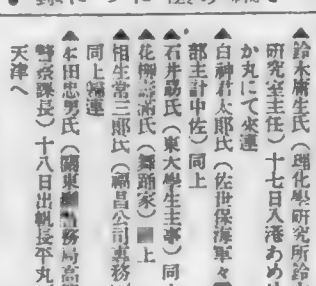 ▲鈴木庸生氏（理化學研究所鈴木
研究室主任）十七日入港あめ
か丸にて來連
▲白神君太郎氏（佐世保海軍々
部主計中佐）同上
▲石井勗氏（東大學生主事）同
▲花柳壽滿氏（舞踊家）上
▲相生常三郎氏（福昌公司專務
同上歸連
▲本田忠男氏（關東務局高
警察課長）十八日出帆長平丸
天津へ